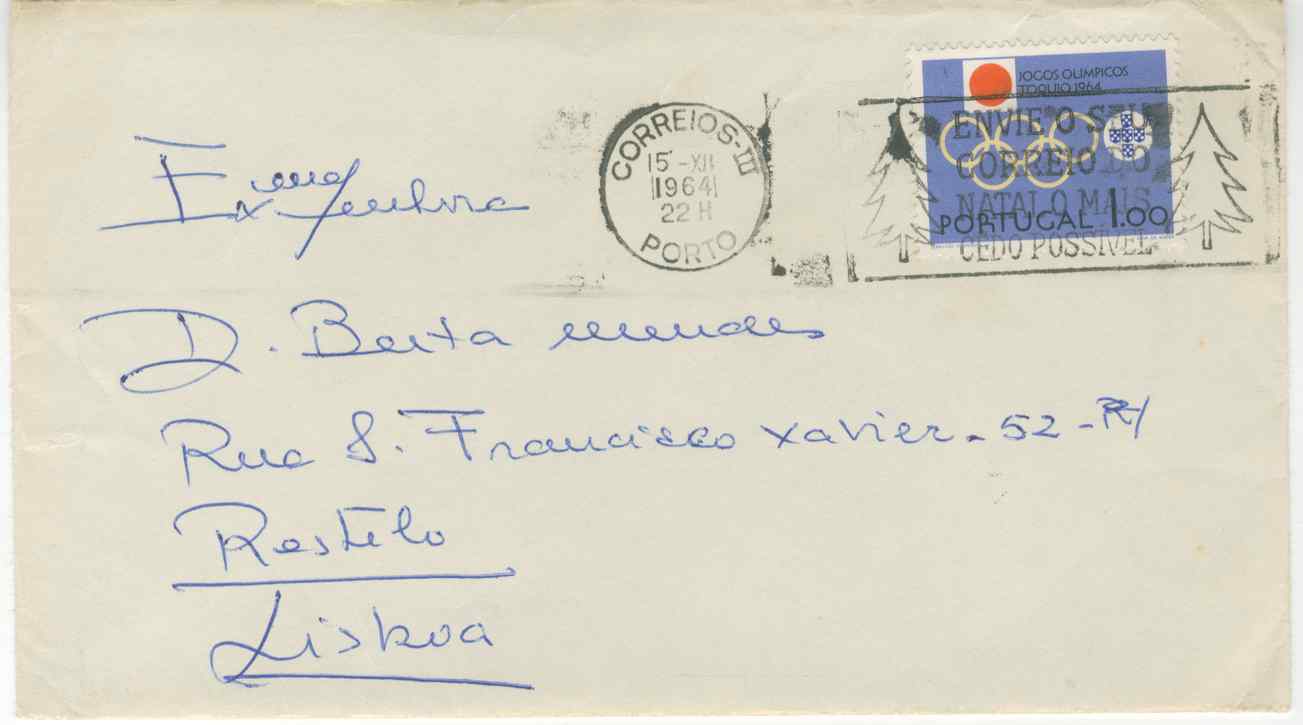 CORREIOS-III
15-XII
1964
22 H
PORTO
JOGOS OLIMPICOS
TOQUIO 1964
PORTUGAL 1.00
ENVIE O SEU
CORREIO DO
NATAL O MAIS
CEDO POSSÍVEL
Exma Senhora
D. Berta Mendes
Rua S. Francisco Xavier - 52 -
Restelo
Lisboa